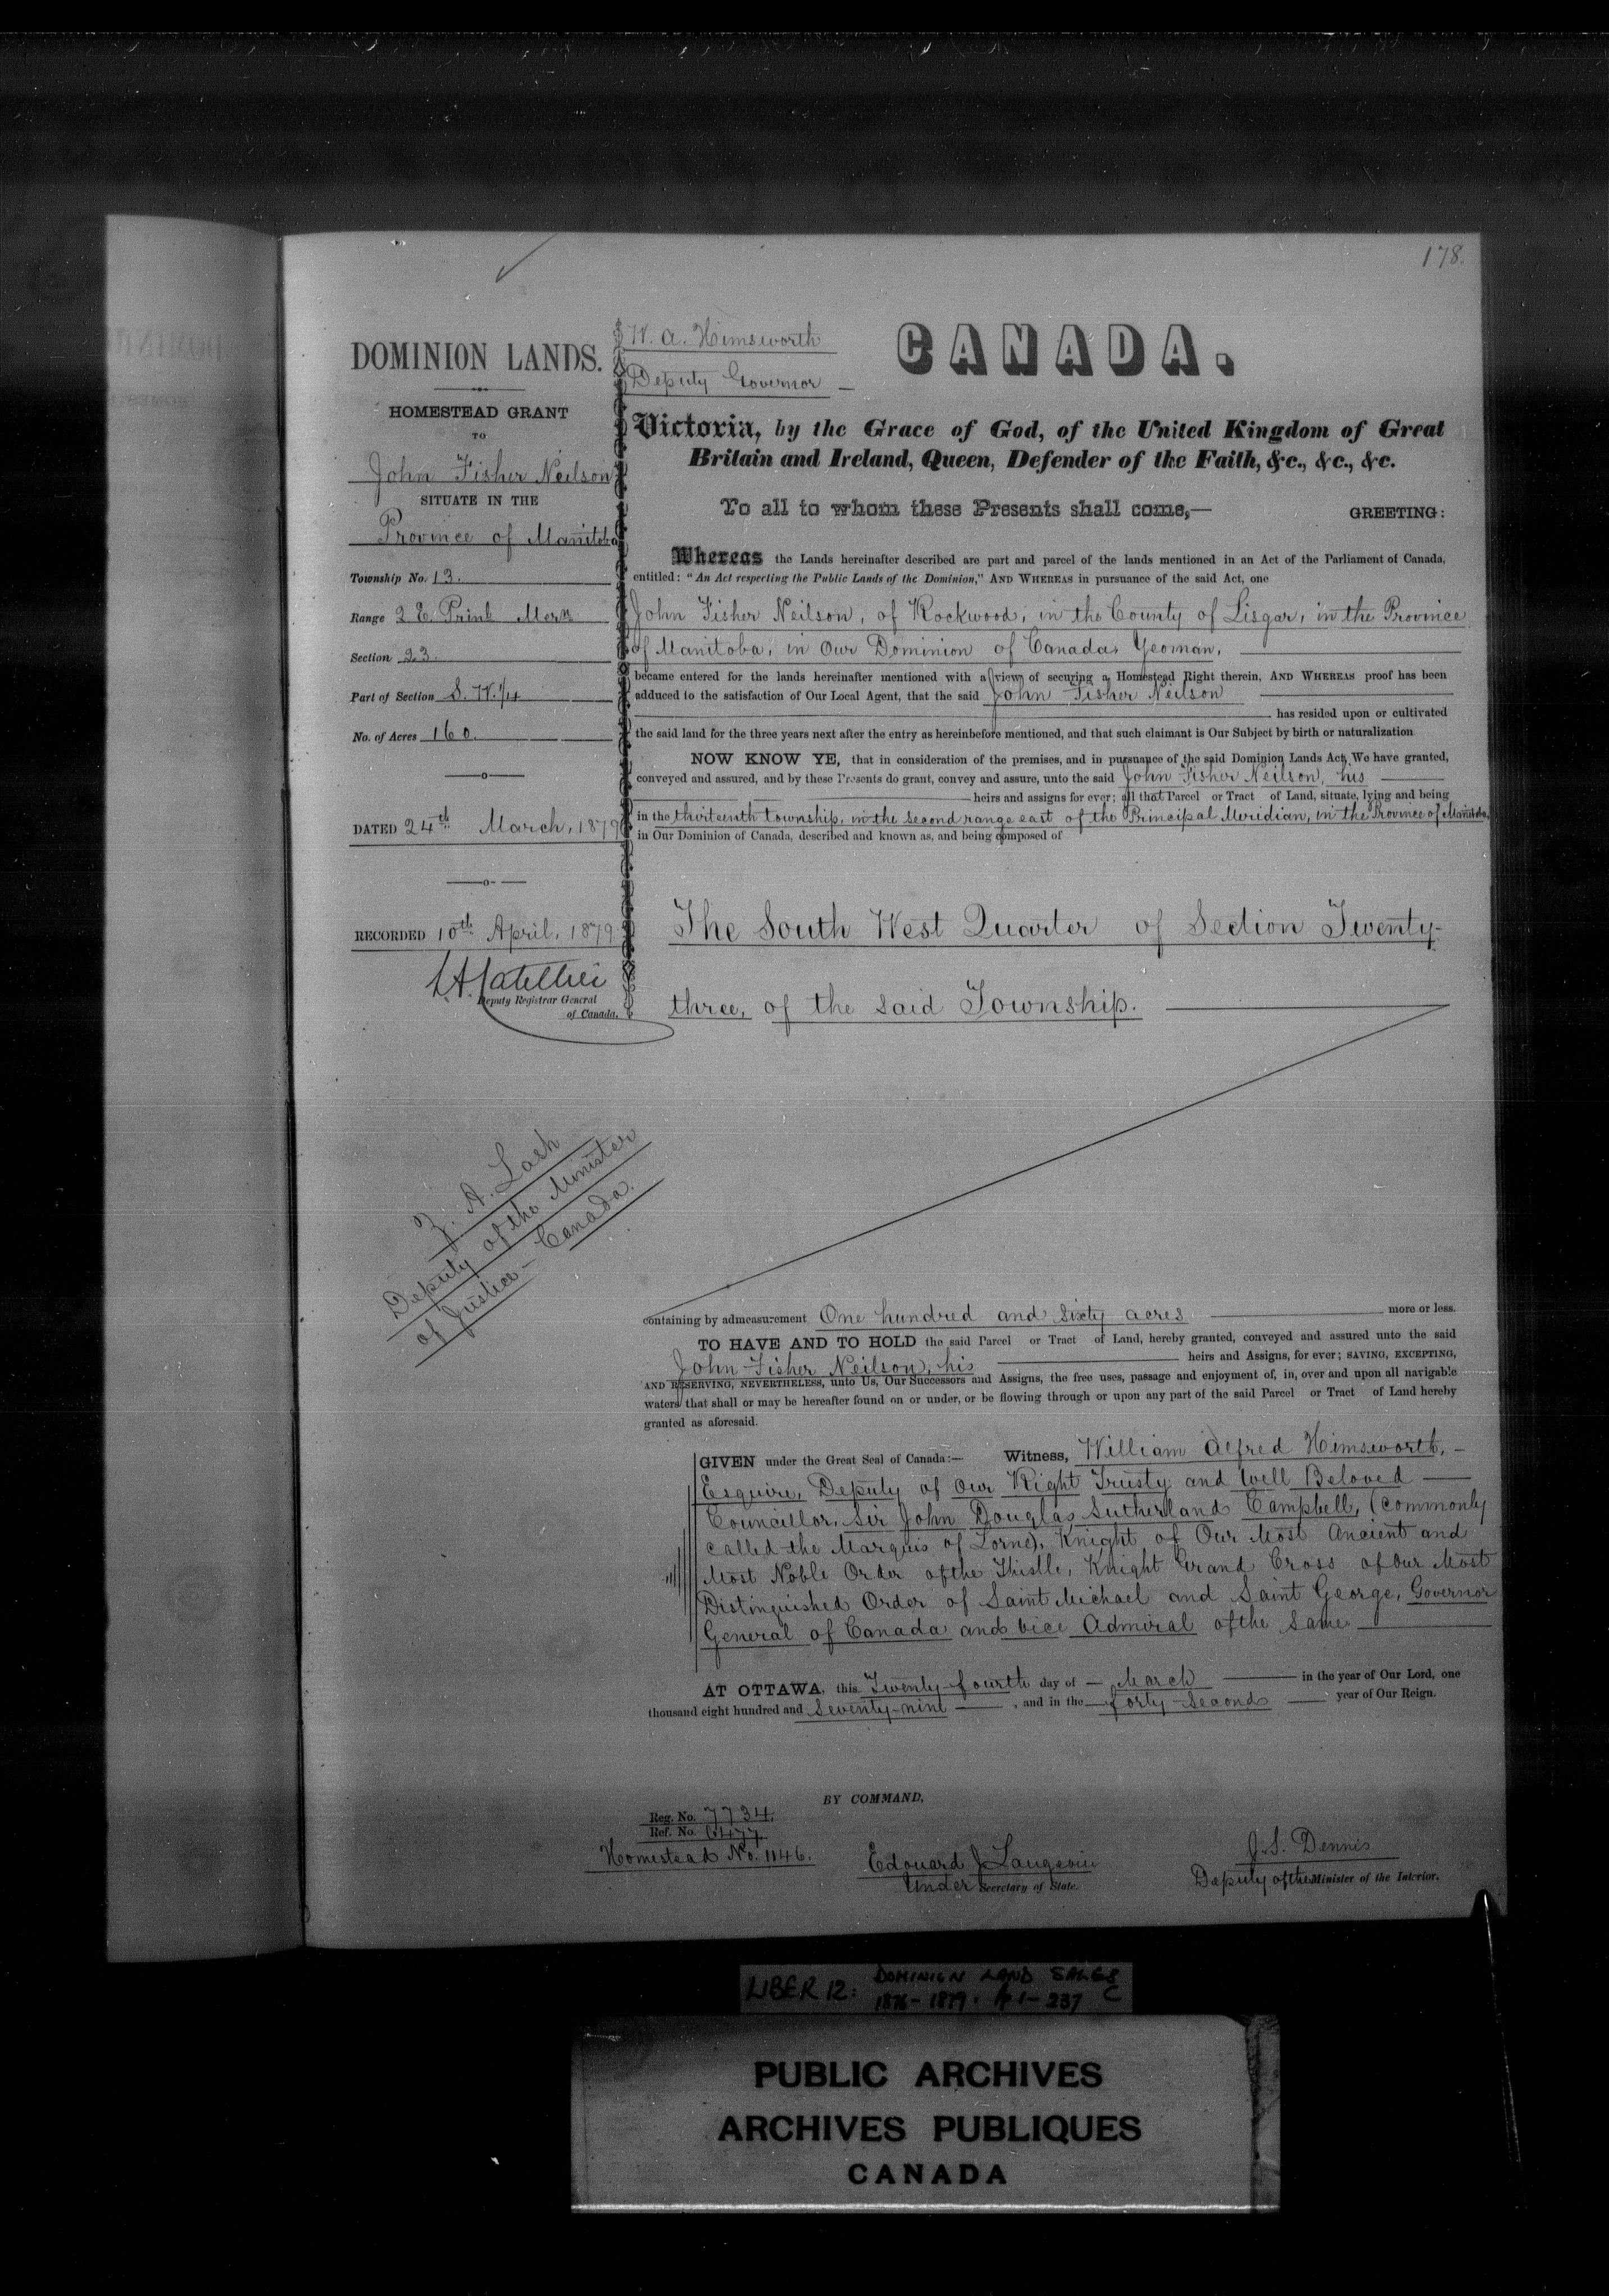 178.
DOMINION LANDS.
HOMESTEAD GRANT
TO
John Fisher Neilson
SITUATE IN THE
Province of Manitoba
Township No. 13.
Range 2 E. Prinl Mern
Section 23.
Part of Section S. W. 1/4
No. of Acres 160.
DATED 24th March, 1879
RECORDED 10th April, 1879
Deputy Registrar General
of Canada.
Z. A. Lash
Deputy of the Minister
of Justice - Canada.
W. A. Himsworth
Deputy Governor —
CANADA.
Victoria, by the Grace of God, of the United Kingdom of Great
Britain and Ireland, Queen, Defender of the Faith, &c., &c., &c.
To all to whom these Presents shall come,— GREETING:
Whereas the Lands hereinafter described are part and parcel of the lands mentioned in an Act of the Parliament of Canada,
entitled: "An Act respecting the Public Lands of the Dominion," AND WHEREAS in pursuance of the said Act, one
John Fisher Neilson, of Rockwood, in the County of Lisgar, in the Province
of Manitoba, in Our Dominion of Canada, Yeoman,
became entered for the lands hereinafter mentioned with a view of securing a Homestead Right therein, AND WHEREAS proof has been
adduced to the satisfaction of Our Local Agent, that the said John Fisher Neilson
has resided upon or cultivated
the said land for the three years next after the entry as hereinbefore mentioned, and that such claimant is Our Subject by birth or naturalization
NOW KNOW YE, that in consideration of the premises, and in pursuance of the said Dominion Lands Act, We have granted,
conveyed and assured, and by these Presents do grant, convey and assure, unto the said John Fisher Neilson, his
heirs and assigns for ever; all that Parcel or Tract of Land, situate, lying and being
in the thirteenth township, in the second range east of the Principal Meridian, in the Province of Manitoba,
in Our Dominion of Canada, described and known as, and being composed of
The South West Quarter of Section Twenty-
three, of the said Township.
containing by admeasurement One hundred and sixty acres more or less.
TO HAVE AND TO HOLD the said Parcel or Tract of Land, hereby granted, conveyed and assured unto the said
John Fisher Neilson, his heirs and Assigns, for ever; SAVING, EXCEPTING,
AND RESERVING, NEVERTHELESS, unto Us, Our Successors and Assigns, the free uses, passage and enjoyment of, in, over and upon all navigable
waters that shall or may be hereafter found on or under, or be flowing through or upon any part of the said Parcel or Tract of Land hereby
granted as aforesaid.
GIVEN under the Great Seal of Canada:— Witness, William Alfred Himsworth, —
Esquire, Deputy of Our Right Trusty and Well Beloved —
Councillor, Sir John Douglas Sutherland Campbell, (commonly
called the Marquis of Lorne), Knight of Our Most Ancient and
Most Noble Order of the Thistle, Knight Grand Cross of Our Most
Distinguished Order of Saint Michael and Saint George, Governor
General of Canada and Vice Admiral of the Same
AT OTTAWA, this Twenty-fourth day of — March in the year of Our Lord, one
thousand eight hundred and seventy-nine, and in the forty-second year of Our Reign.
BY COMMAND,
Reg. No. 7734.
Ref. No. 6477
Homestead No. 1146.
Edouard J Langevin
Under Secretary of State.
J. S. Dennis
Deputy of the Minister of the Interior.
LIBER 12: DOMINION LAND SALES
1876-1879. pp 1-237 C
PUBLIC ARCHIVES
ARCHIVES PUBLIQUES
CANADA